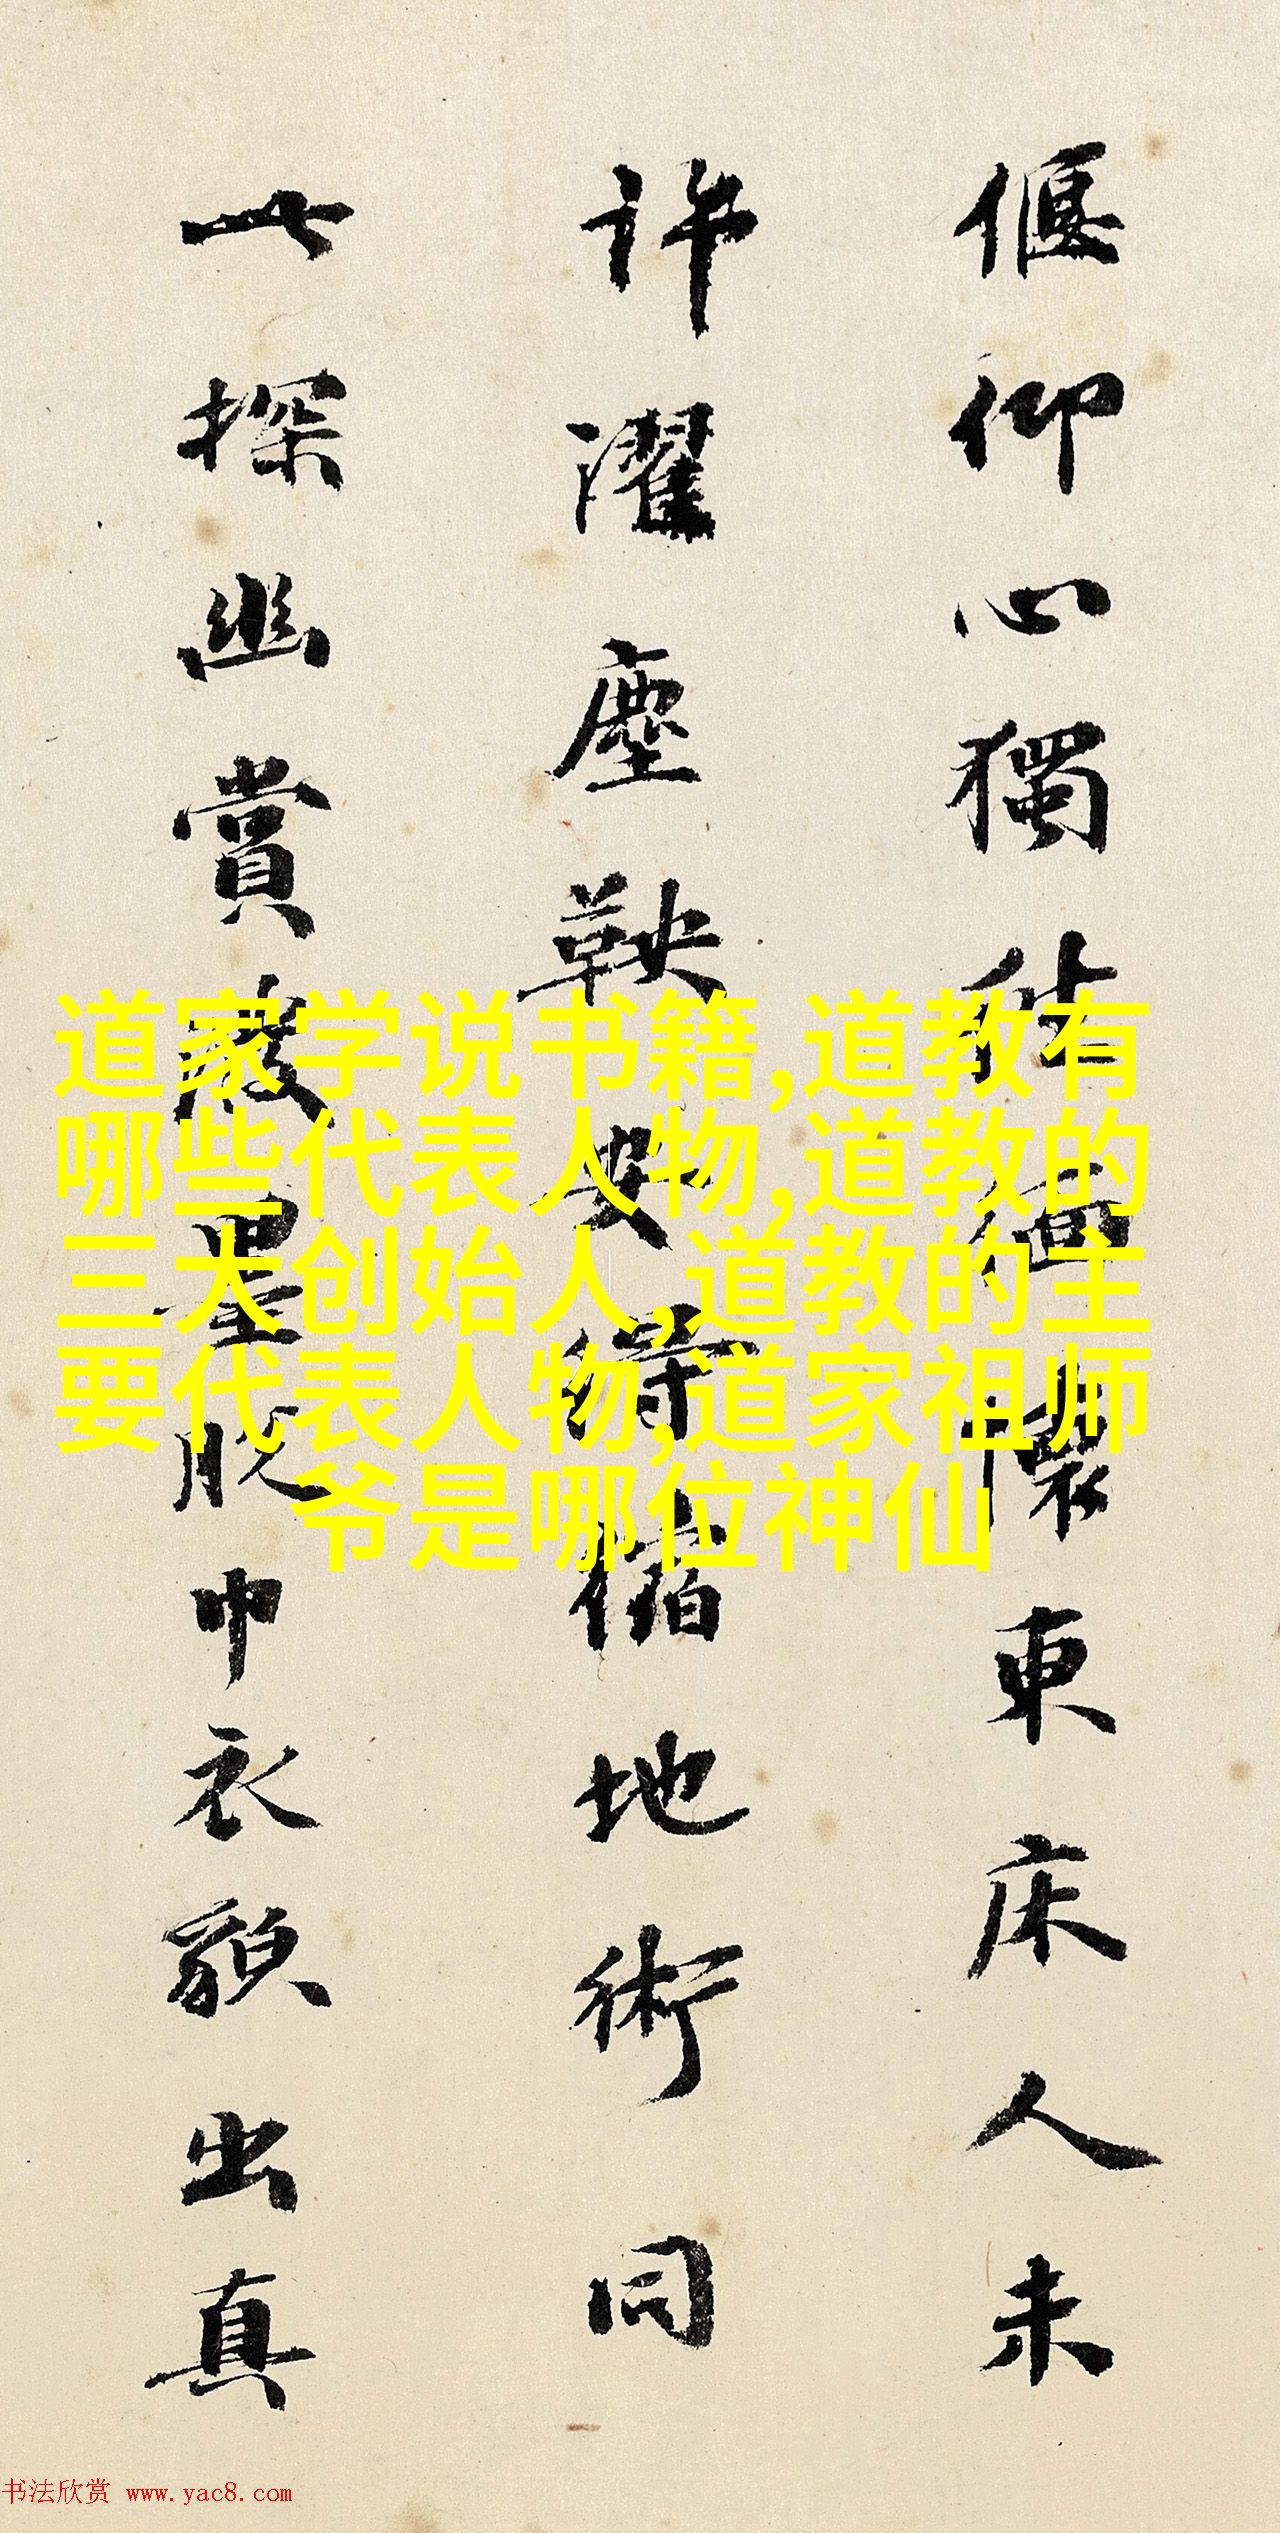 偃仰心獨懷東床人未
許濯塵鞅安得縮地術同
此探幽賞墨脱巾衣貌出真
道家学说书籍,道教有
哪些代表人物,道教的
三大创始人,道教的主
要代表人物,道家祖师
爷是哪位神仙
书法欣赏 www.yac8.com